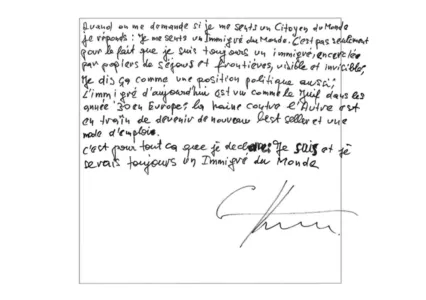 Quand on me demande si je me sents un Citoyen du Monde
je réponds: "Je me sents un Immigré du Monde. C'est pas seulement
par le fait que je suis toujours un immigré, encerclée
par papiers de séjours et frontières, visible et invisibles,
Je dis ça comme une position politique aussi;
L'immigré d'aujourd'hui est vu comme le Juif dans les
année 30 en Europe; la haine contre l'Autre est
en train de devenir de nouveau best seller et une
mode d'emploi.
C'est pour tout ca que je declare: Je suis et je
serais toujours un Immigré du Monde